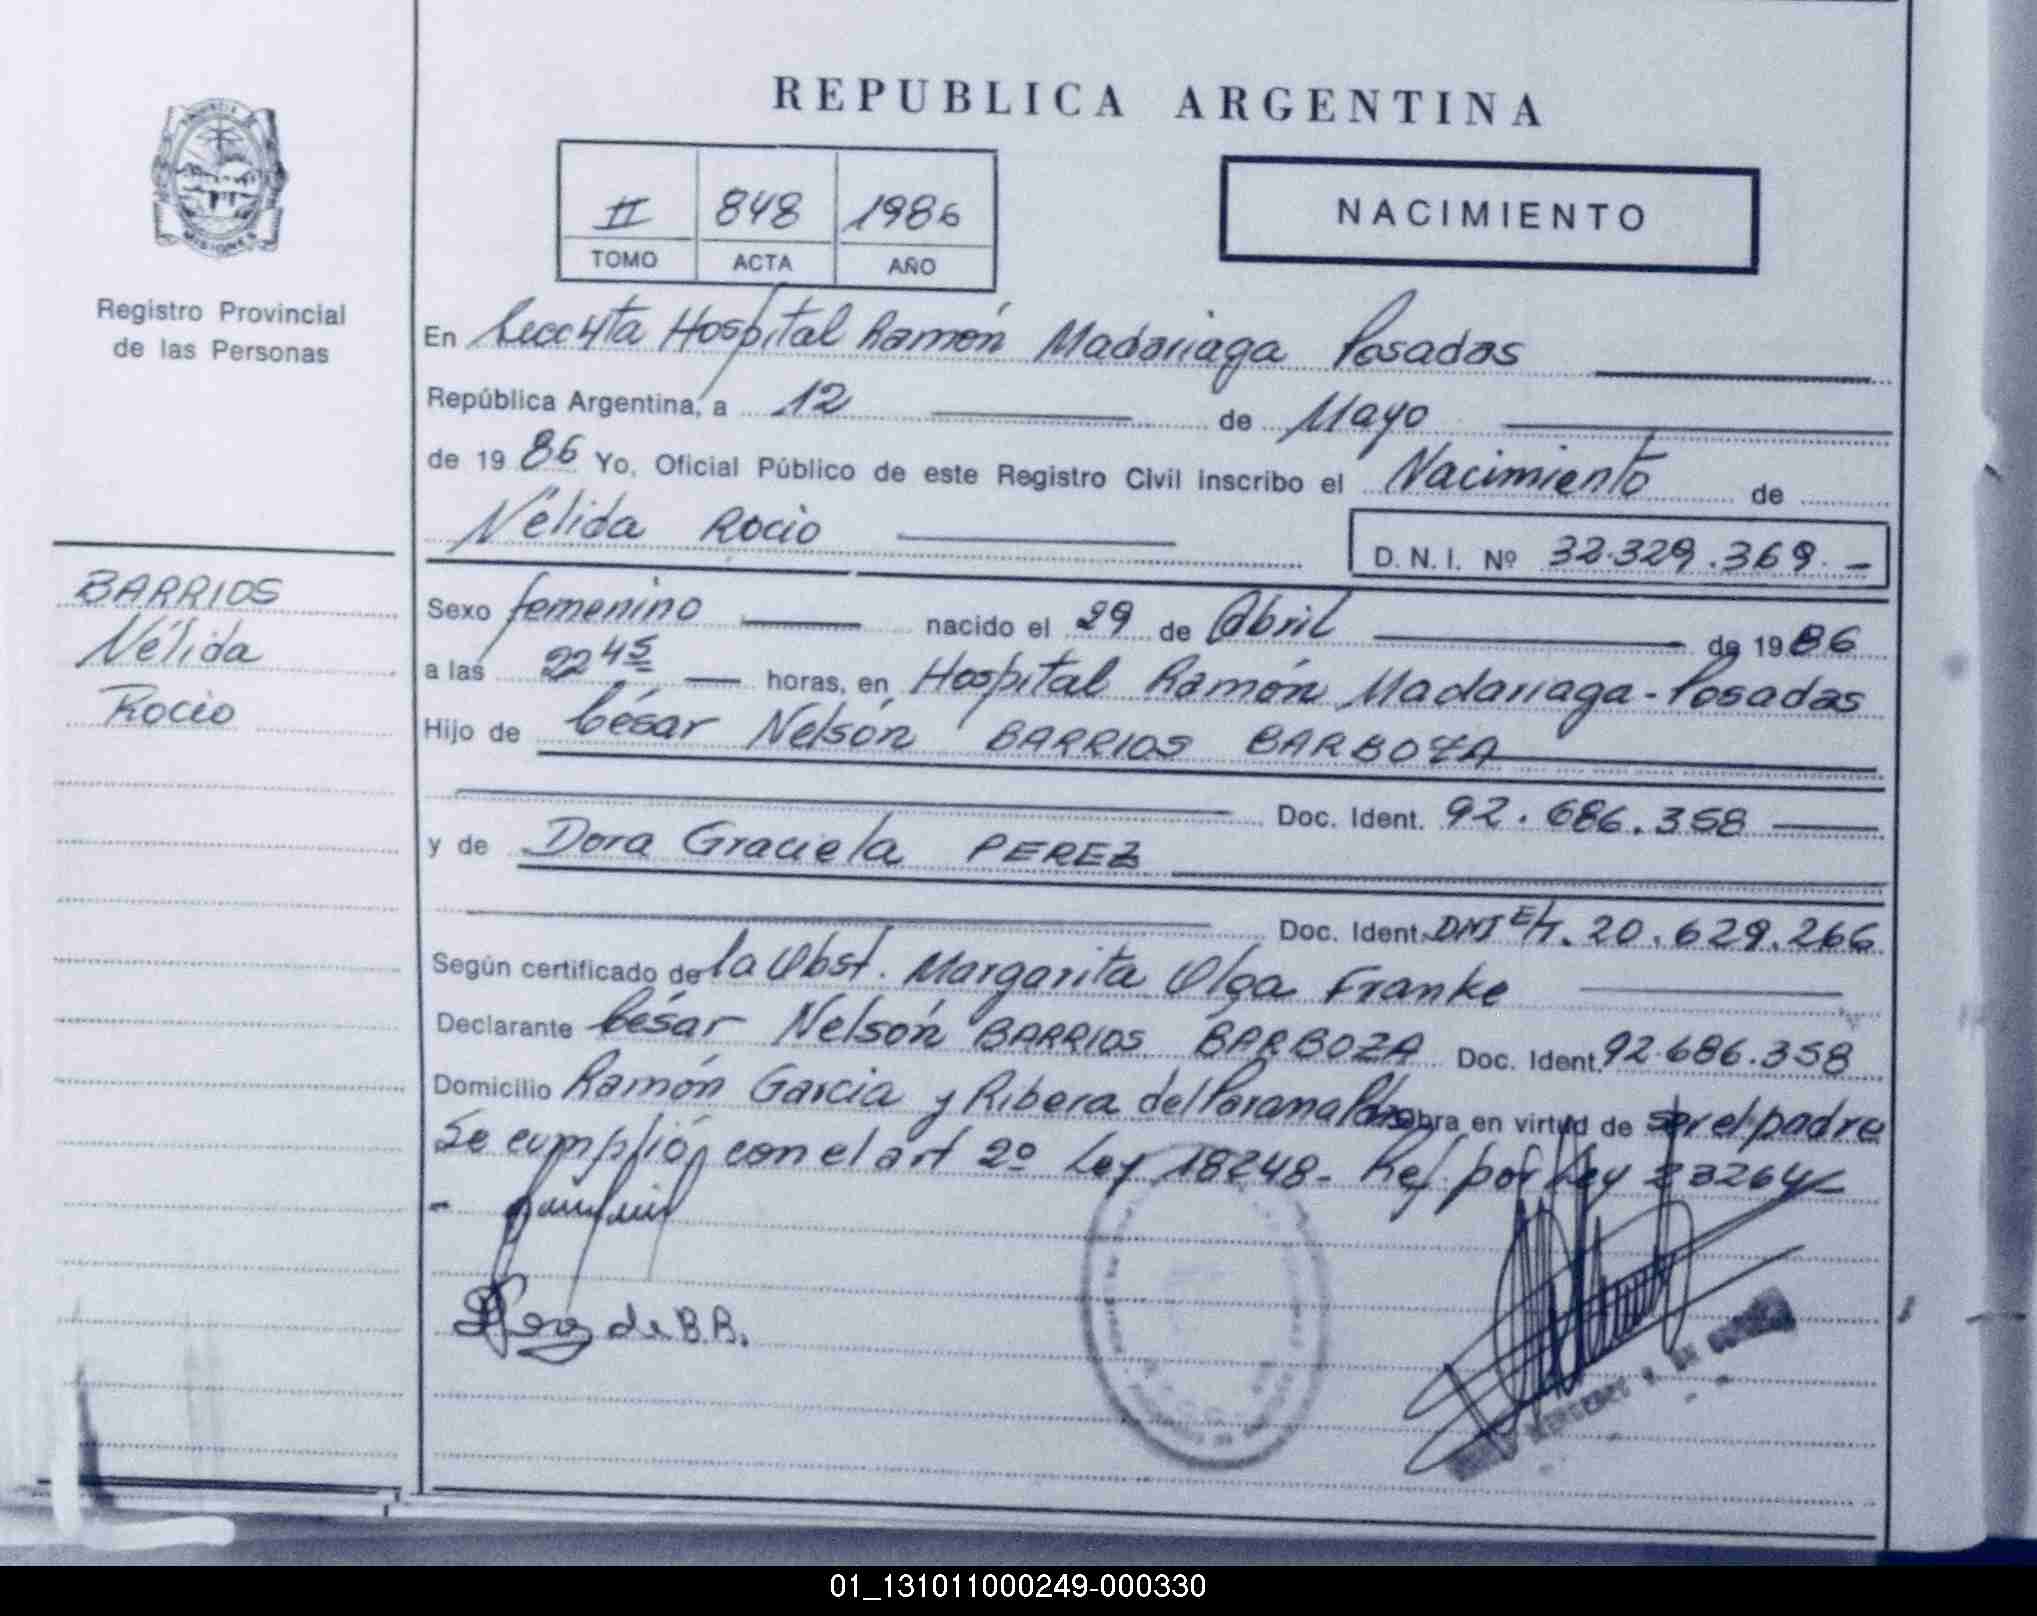 REPUBLICA ARGENTINA
II 848 1986
TOMO ACTA AÑO
NACIMIENTO
PROVINCIA DE MISIONES
Registro Provincial
de las Personas
BARRIOS
Nélida
Rocio
En Secc 4ta Hospital Ramón Madariaga Posadas
República Argentina, a 12 de Mayo
de 1986 Yo, Oficial Público de este Registro Civil inscribo el Nacimiento de
Nélida Rocio D. N. I. Nº 32.329.369.-
Sexo femenino nacido el 29 de Abril de 1986
a las 22 45 horas, en Hospital Ramón Madariaga - Posadas
Hijo de César Nelsón BARRIOS BARBOZA
Doc. Ident. 92.686.358
y de Dora Graciela PEREZ
Doc. Ident. DNI E/T. 20.629.266
Según certificado de la Obst. Margarita Olga Franke
Declarante César Nelsón BARRIOS BARBOZA Doc. Ident. 92.686.358
Domicilio Ramón Garcia y Ribera del Parana Pdas obra en virtud de ser el padre
Se cumplió con el art 2º Ley 18248- Ref. por Ley 23264
Perez de B.B.
01_131011000249-000330